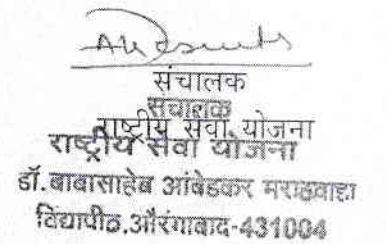 संचालक
संचालक
राष्ट्रीय सेवा योजना
राष्ट्रीय सेवा योजना
डॉ. बाबासाहेब आंबेडकर मराठवाडा
विद्यापीठ,औरंगाबाद-431004